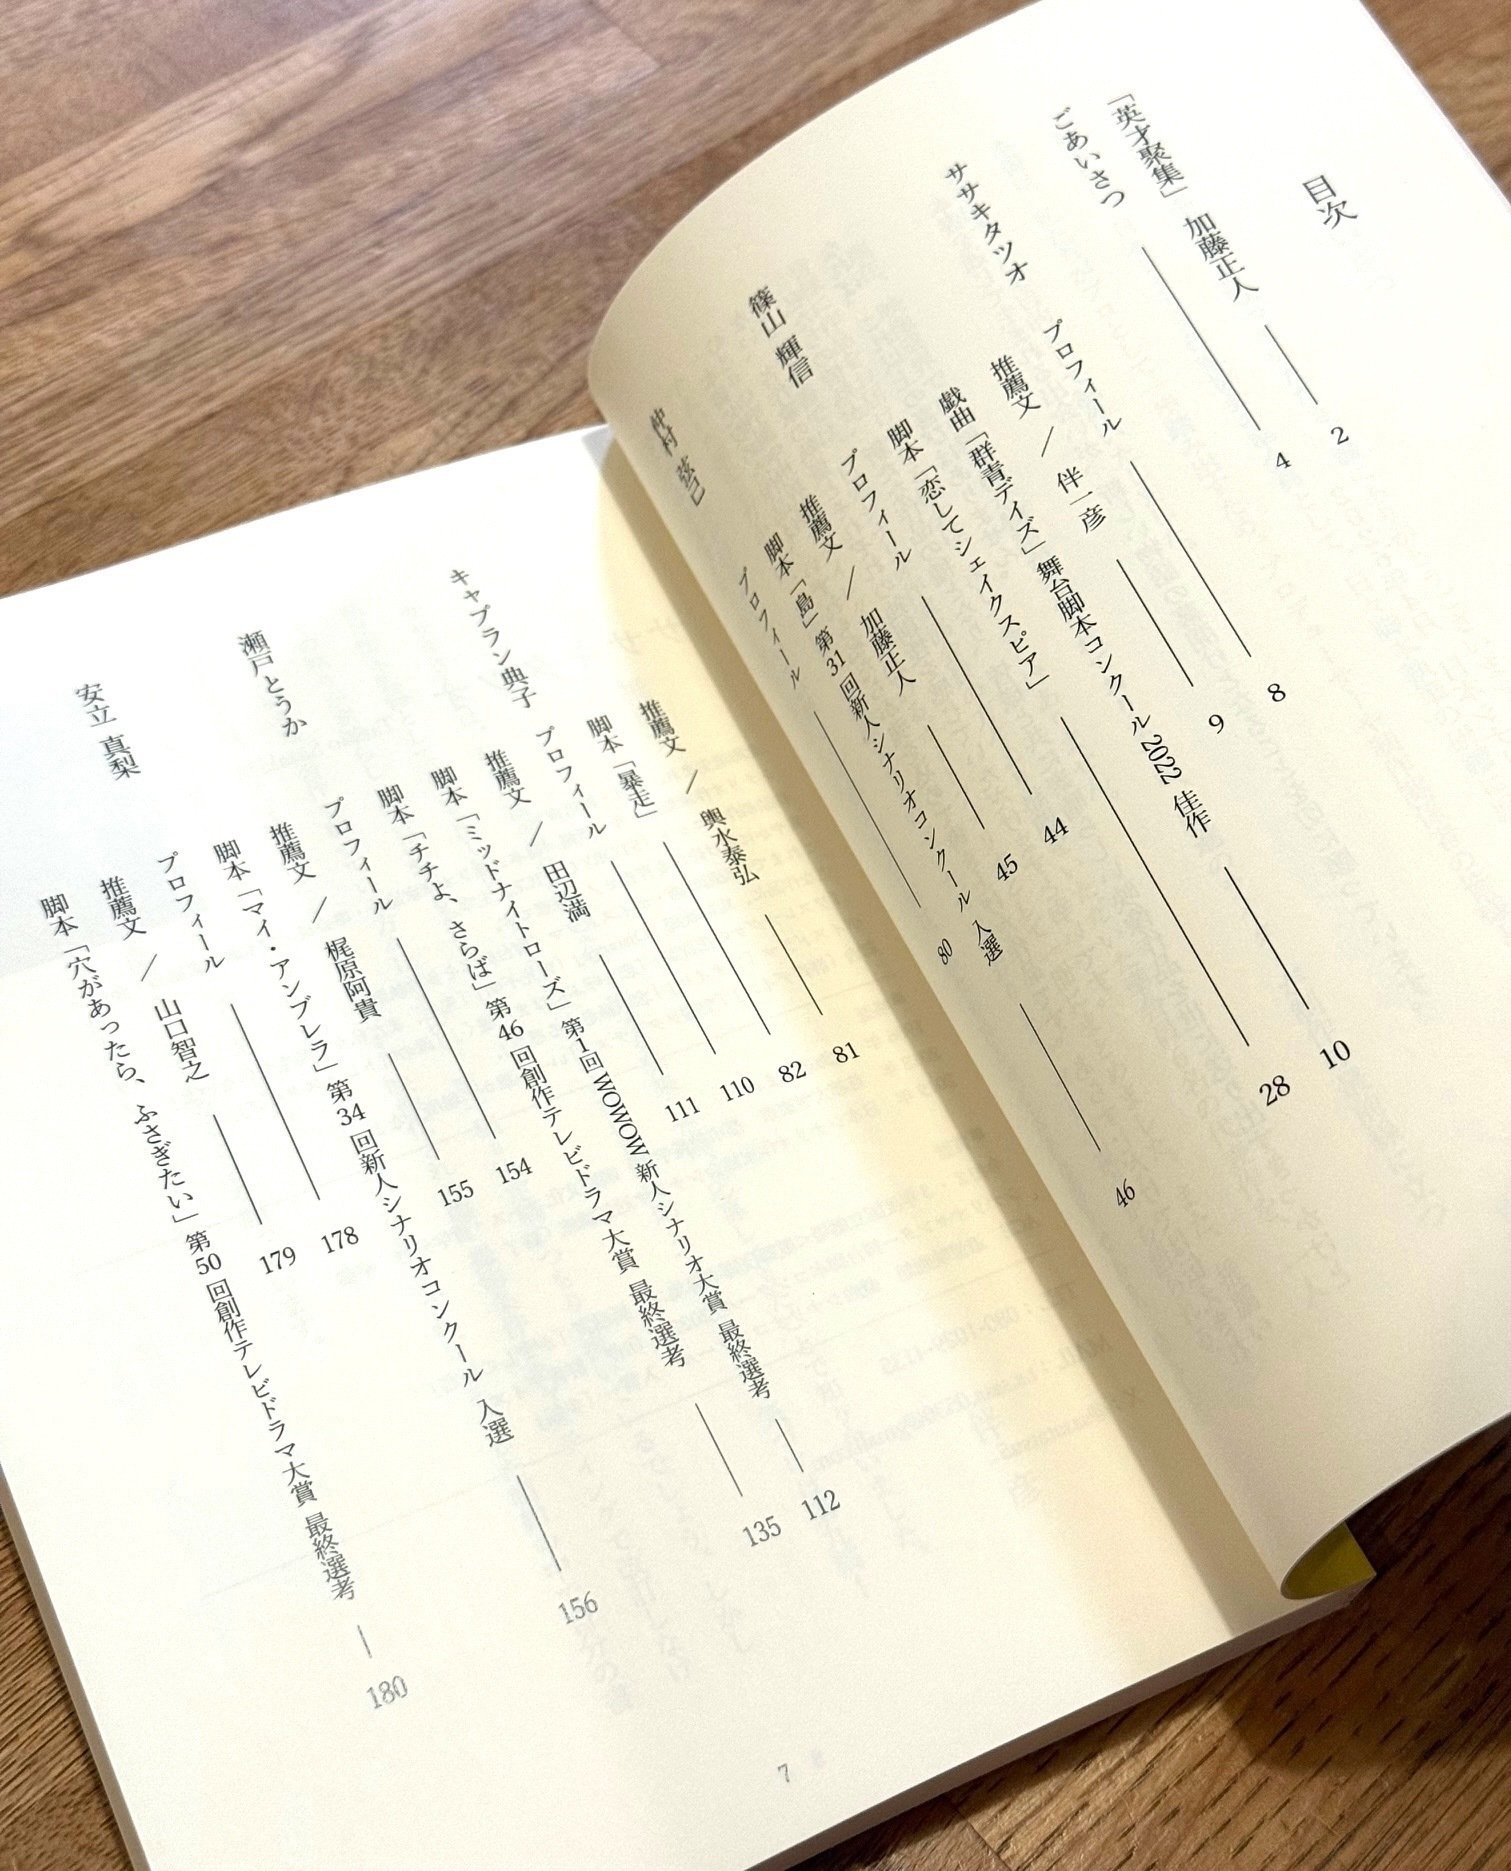 目次
「英才聚集」 加藤正人 ― 2
ごあいさつ ― 4
ササキタツオ プロフィール ― 8
推薦文／伴一彦 ― 9
戯曲「群青デイズ」舞台脚本コンクール2022 佳作 ― 10
脚本「恋してシェイクスピア」 ― 28
篠山 輝信 プロフィール ― 44
推薦文／加藤正人 ― 45
脚本「島」第31回新人シナリオコンクール 入選 ― 46
仲村 弦己 プロフィール ― 80
推薦文／輿水泰弘 ― 81
脚本「暴走」 ― 82
キャプラン典子 プロフィール ― 110
推薦文／田辺満 ― 111
脚本「ミッドナイトローズ」第1回WOWOW新人シナリオ大賞 最終選考 ― 112
脚本「チチよ、さらば」第46回創作テレビドラマ大賞 最終選考 ― 135
瀬戸とうか プロフィール ― 154
推薦文／梶原阿貴 ― 155
脚本「マイ・アンブレラ」第34回新人シナリオコンクール 入選 ― 156
安立 真梨 プロフィール ― 178
推薦文／山口智之 ― 179
脚本「穴があったら、ふさぎたい」第50回創作テレビドラマ大賞 最終選考 ― 180
7